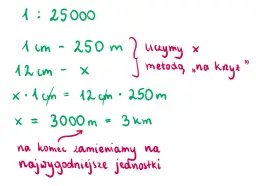 1 : 25000
1 cm - 250 m
12 cm - x
liczymy x
metodą "na krzyż"
x · 1 cm = 12 cm · 250 m
x = 3000 m = 3 km
na koniec zamieniamy na
najwygodniejsze jednostki